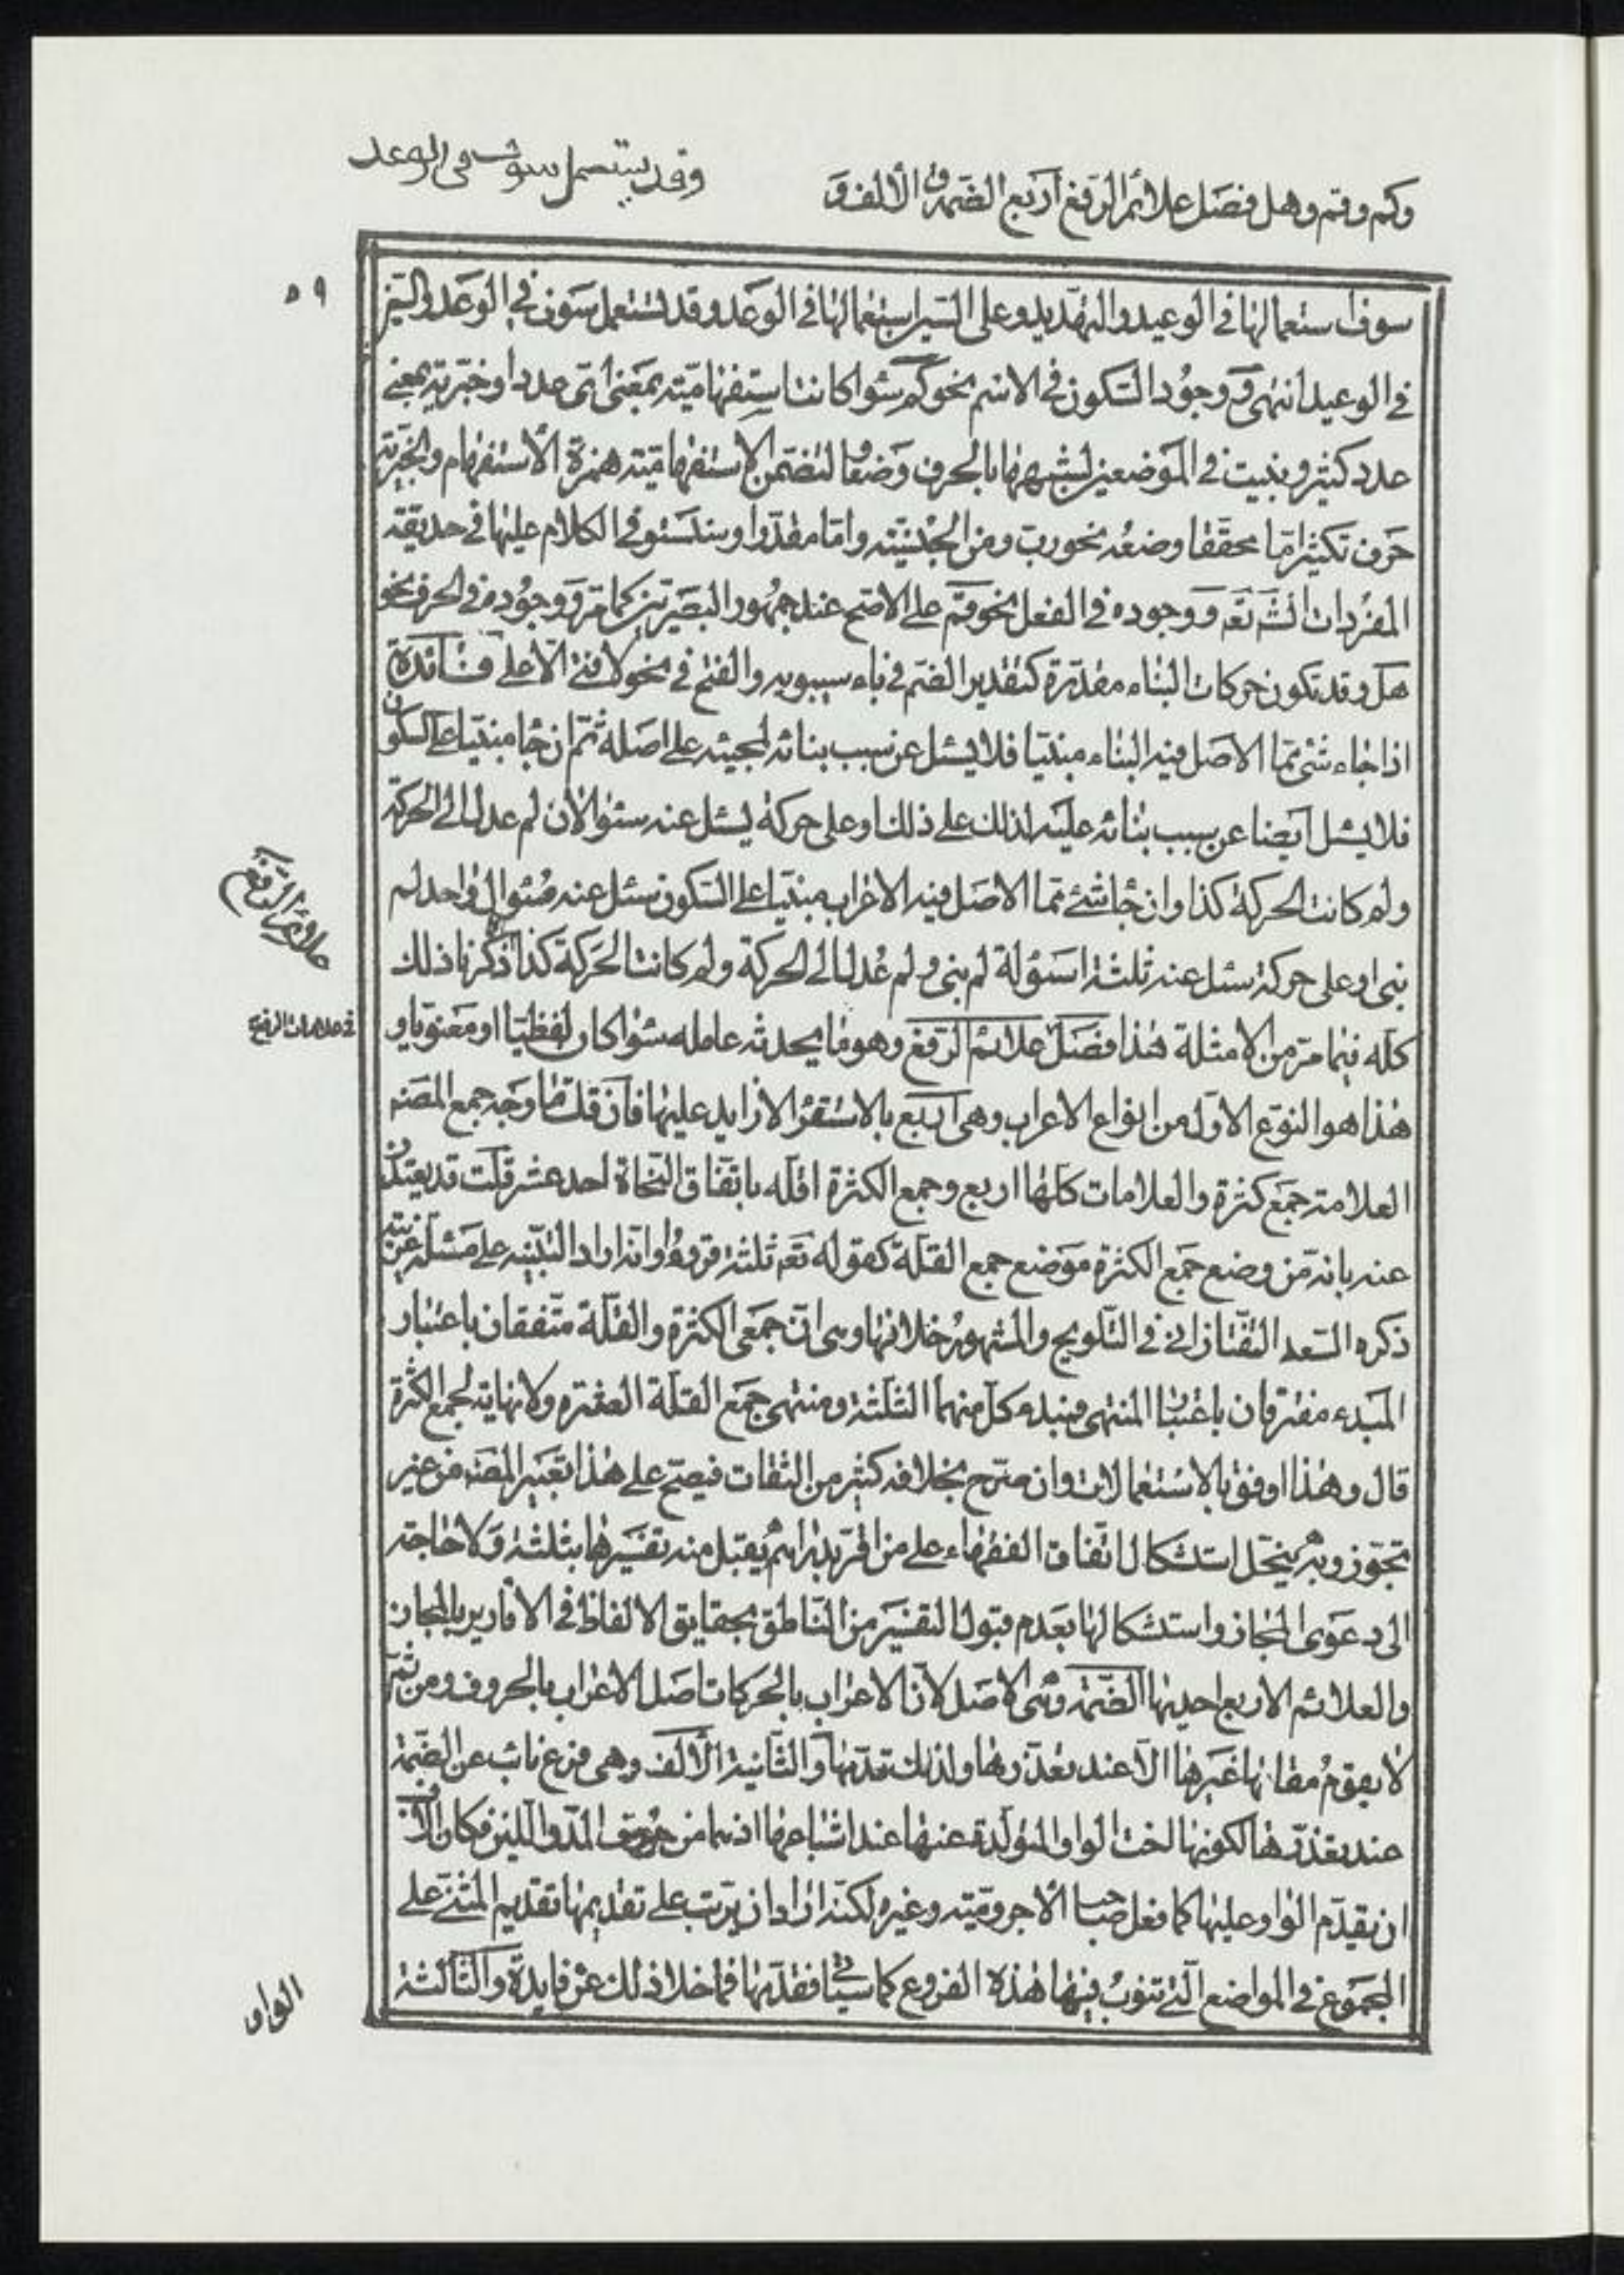 وقد يستعمل سوف فى الوعد
وكم وقم وهل فصل علائم الرفع أربع الضمة و الألف و
٥٩
سوف استعمالها في الوعيد والتهديد وعلى السين استعمالها في الوعد وقد تستعمل سوف في الوعد والسين
في الوعيد انتهى و وجود السكون في الاسم نحو كم سواء كانت استفهامية بمعنى اى عدد او خبرية بمعنى
عدد كثير وبنيت في الموضعين لشبهها بالحرف وضعا و لتضمن الاستفهامية همزة الاستفهام والخبرية
حرف تكثير اما محققا وضعه نحو رب ومن الجنسية واما مقدرا وسنستوفى الكلام عليها في حديقة
المفردات انشاء تعه و وجوده في الفعل نحو قم على الاصح عند جمهور البصريين كما مر و وجوده في الحرف نحو
هل وقد تكون حركات البناء مقدرة كتقدير الضم في ياء سيبويه والفتح في نحو لا فتى الا على فائدة
اذا جاء شئ مما الاصل فيه البناء مبنيا فلا يسئل عن سبب بنائه لمجيئه على اصله ثم ان جا مبنيا على السكون
فلا يسئل ايضا عن سبب بنائه عليه لذلك على ذلك او على حركة يسئل عنه سئوالان لم عدل الى الحركة
ولم كانت الحركة كذا وان جا شئ مما الاصل فيه الاعراب مبنيا على السكون سئل عنه سئوال واحد لم
بنى او على حركة سئل عنه ثلثة اسئولة لم بنى ولم عدل الى الحركة ولم كانت الحركة كذا ذكرنا ذلك
كله فيما مر من الامثلة هذا فصل علائم الرفع وهو ما يحدثه عامله سواء كان لفظيا او معنويا و
في علامات الرفع
هذا هو النوع الاول من انواع الاعراب وهى اربع بالاستقراء لا زايد عليها فان قلت ما وجه جمع المصنه
العلامة جمع كثرة والعلامات كلها اربع وجمع الكثرة اقله باتفاق النحاة احد عشر قلت قد يعتذر
عنه بانه من وضع جمع الكثرة موضع جمع القلة كقوله تعه ثلثة قروء او انه اراد التنبيه على مسئلة غريبة
ذكره السعد التفتازانى في التلويح والمشهور خلافها وهى ان جمعى الكثرة والقلة متفقان باعتبار
المبدء مفترقان باعتبار المنتهى فمبدء كل منهما الثلثة ومنتهى جمع القلة العشرة ولا نهاية لجمع الكثرة
قال وهذا اوفق بالاستعمالات وان صرح بخلافه كثير من الثقات فيصح على هذا تعبير المصنه من غير
تجوز وبه ينحل استشكال اتفاق الفقهاء على من اقر بدراهم يقبل منه تفسيرها بثلثة ولا حاجة
الى دعوى المجاز واستشكالها بعدم قبول التفسير من الناطق بحقايق الالفاظ في الاقارير بالمجاز
والعلائم الاربع احديها الضمة وهى الاصل لان الاعراب بالحركات اصل الاعراب بالحروف ومن ثم
لا يقوم مقامها غيرها الا عند تعذرها ولذلك قدمها والثانية الألف وهى فرع نائب عن الضمة
عند تعذرها لكونها اخت الواو المتولدة عنها عند اشباعها اذ هما من حروف المد واللين فكان الانسب
ان يقدم الواو عليها كما فعل صاحب الاجرومية وغيره لكنه اراد ان يرتب على تقديمها تقديم المثنى على
المجموع في المواضع التى تنوب فيها هذه الفروع كما سياتى فقدمها فما خلا ذلك عن فايدة والثالثة
الواو